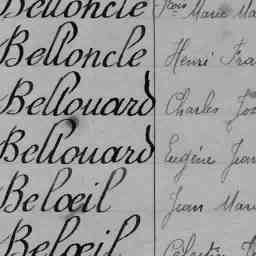 Belloncle Marie Ma
Belloncle Henri Fra
Bellouard Charles
Bellouard Eugène Jean
Belœil Jean Mari
Belœil Célestin